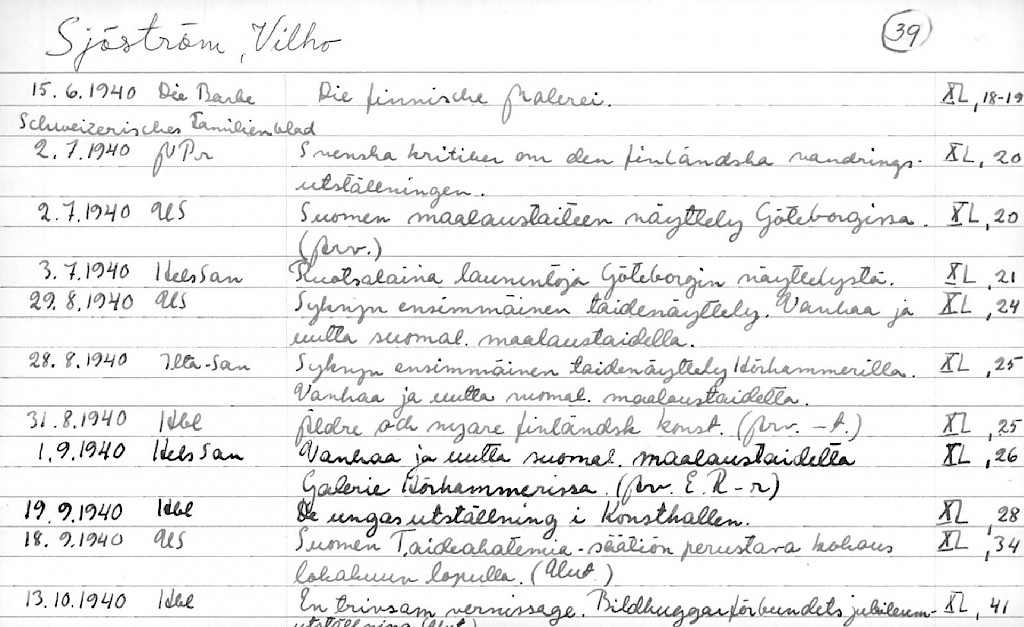 Sjöström, Vilho 39
15.6.1940 Die Barke Die finnische Malerei. XL, 18-19
Schweizerisches Familienblad
2.7.1940 NPr Svenska kritiker om den finländska vandrings-
utställningen. XL, 20
2.7.1940 US Suomen maalaustaiteen näyttely Göteborgissa. XL, 20
(arv.)
3.7.1940 HelsSan Ruotsalaina lausuntoja Göteborgin näyttelystä. XL, 21
29.8.1940 US Syksyn ensimmäinen taidenäyttely. Vanhaa ja XL, 24
uutta suomal. maalaustaidella.
28.8.1940 Ilta-San Syksyn ensimmäinen taidenäyttely Hörhammerilla. XL, 25
Vanhaa ja uutta suomal. maalaustaidetta.
31.8.1940 Hbl Äldre och nyare finländsk konst. (arv. -t.) XL, 25
1.9.1940 HelsSan Vanhaa ja uutta suomal. maalaustaidetta XL, 26
Galerie Hörhammerissa. (arv. E.R-r)
19.9.1940 Hbl De ungas utställning i Konsthallen. XL, 28
18.9.1940 US Suomen Taideakatemia-säätiön perustava kokous XL, 34
lokakuun lopulla. (Uut.)
13.10.1940 Hbl En trivsam vernissage. Bildhuggarförbundets jubileum- XL, 41
utställning (Uut.)